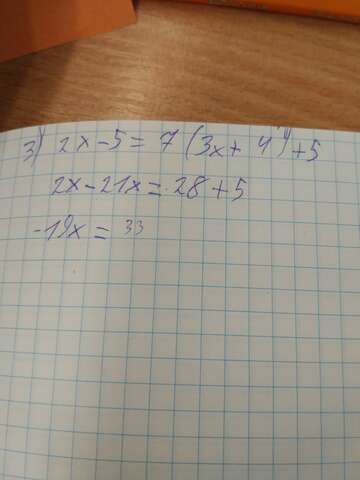 3) 2x-5=7(3x+4)+5
2x-21x=28+5
-19x=33